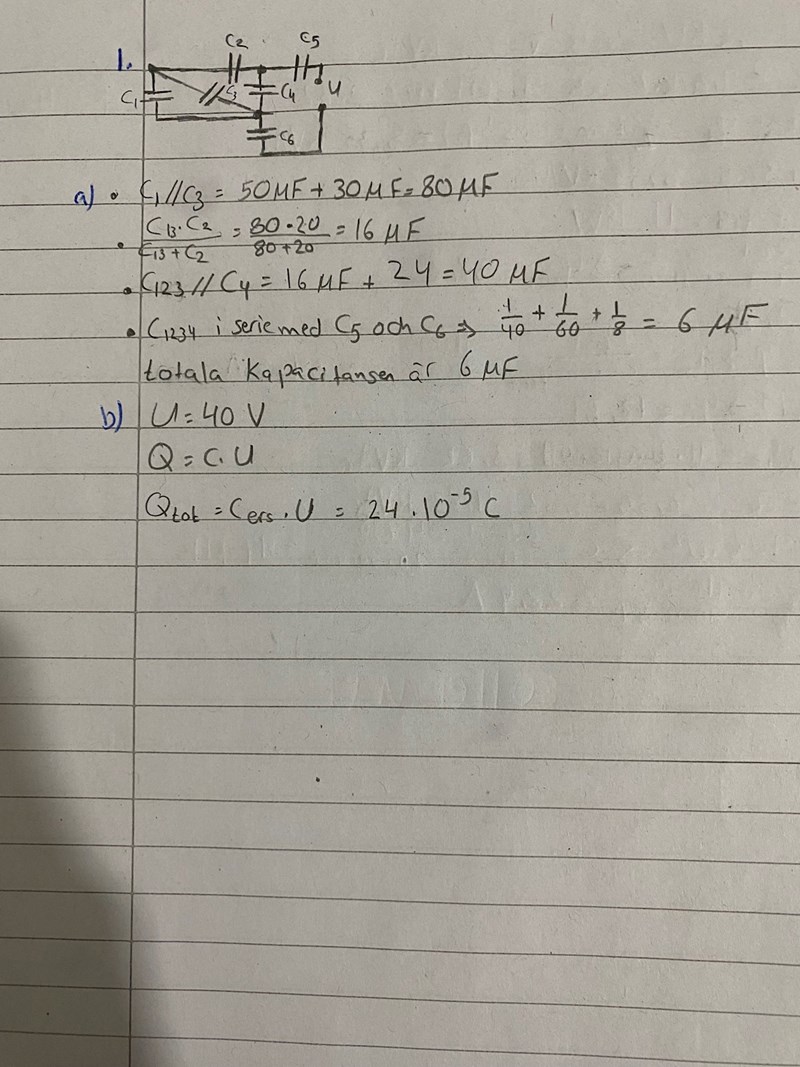 1.
C2
C5
C1
C3
C4
U
C6
a) • C1//C3 = 50μF + 30μF = 80μF
• C13·C2 / C13+C2 = 80·20 / 80+20 = 16 μF
• C123 // C4 = 16μF + 24 = 40 μF
• C1234 i serie med C5 och C6 ⇒ 1/40 + 1/60 + 1/8 = 6 μF
totala kapacitansen är 6 μF
b) U = 40 V
Q = C·U
Qtot = Cers·U = 24·10^-5 C